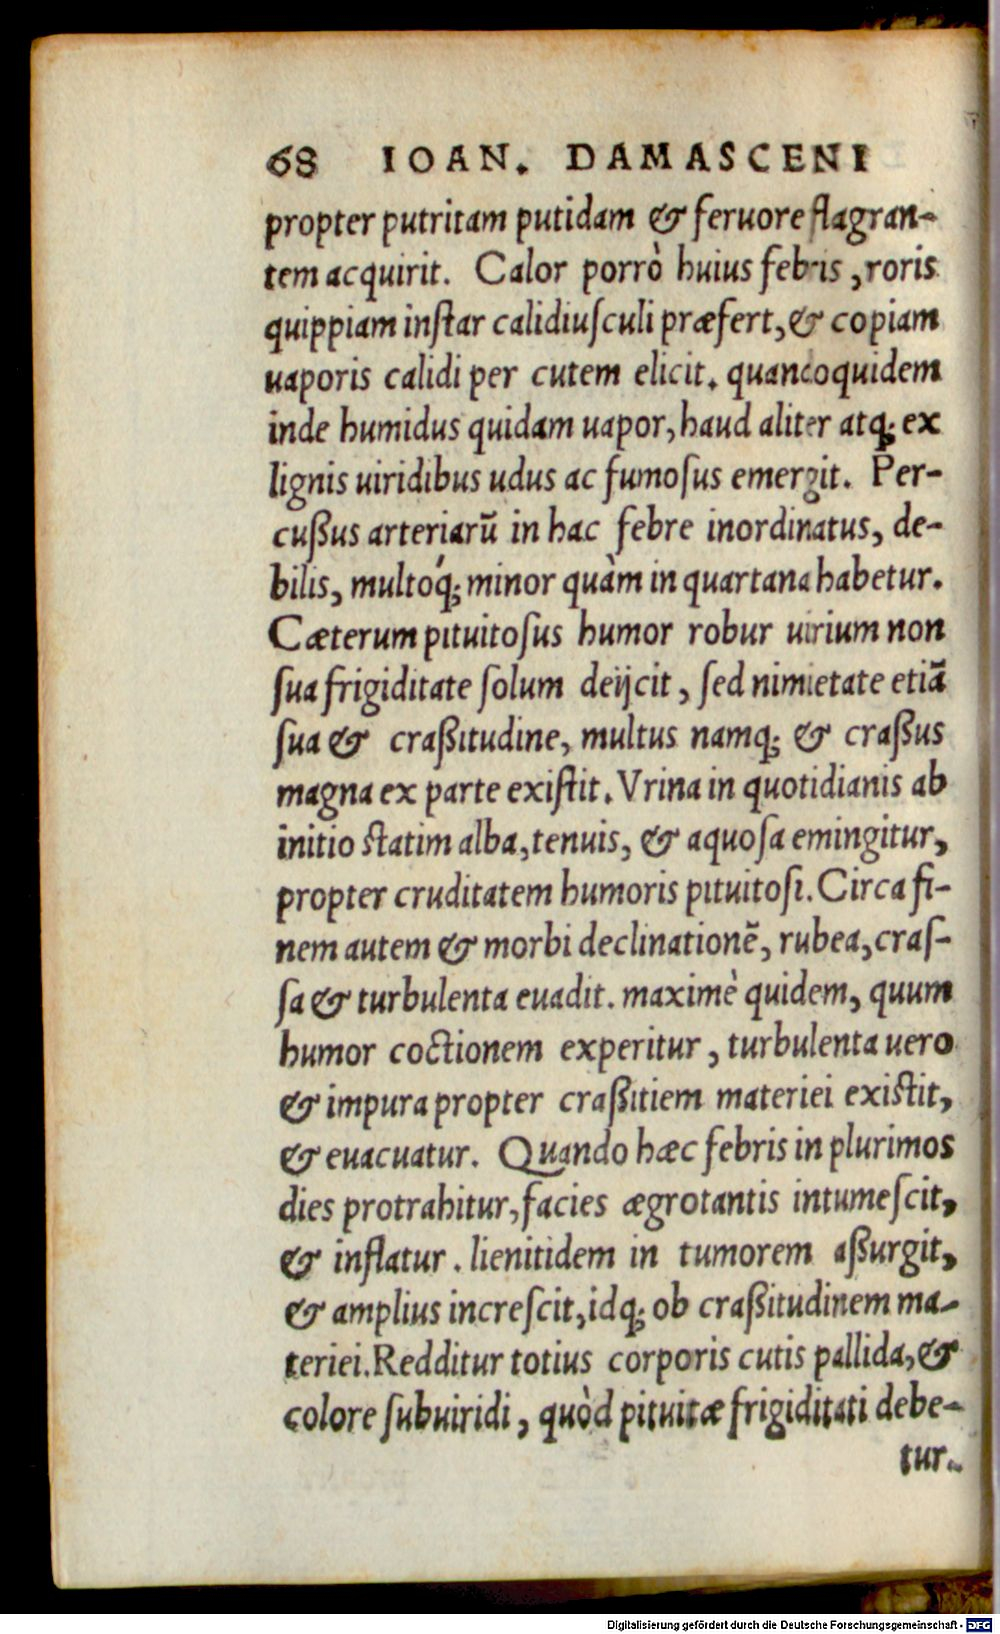 68 IOAN. DAMASCENI
propter putritam putidam & feruore flagran-
tem acquirit. Calor porrò huius febris, roris
quippiam inſtar calidiuſculi præfert, & copiam
uaporis calidi per cutem elicit. quandoquidem
inde humidus quidam uapor, haud aliter atq; ex
lignis uiridibus udus ac fumoſus emergit. Per-
cußus arteriarū in hac febre inordinatus, de-
bilis, multóq; minor quàm in quartana habetur.
Cæterum pituitoſus humor robur uirium non
ſua frigiditate ſolum deijcit, ſed nimietate etiā
ſua & craßitudine, multus namq; & craßus
magna ex parte exiſtit. Vrina in quotidianis ab
initio ſtatim alba, tenuis, & aquoſa emingitur,
propter cruditatem humoris pituitoſi. Circa fi-
nem autem & morbi declinationē, rubea, craſ-
ſa & turbulenta euadit. maximè quidem, quum
humor coctionem experitur, turbulenta uero
& impura propter craßitiem materiei exiſtit,
& euacuatur. Quando hæc febris in plurimos
dies protrahitur, facies ægrotantis intumeſcit,
& inflatur. lienitidem in tumorem aßurgit,
& amplius increſcit, idq; ob craßitudinem ma-
teriei. Redditur totius corporis cutis pallida, &
colore ſubuiridi, quòd pituitæ frigiditati debe-
tur.
Digitalisierung gefördert durch die Deutsche Forschungsgemeinschaft - DFG